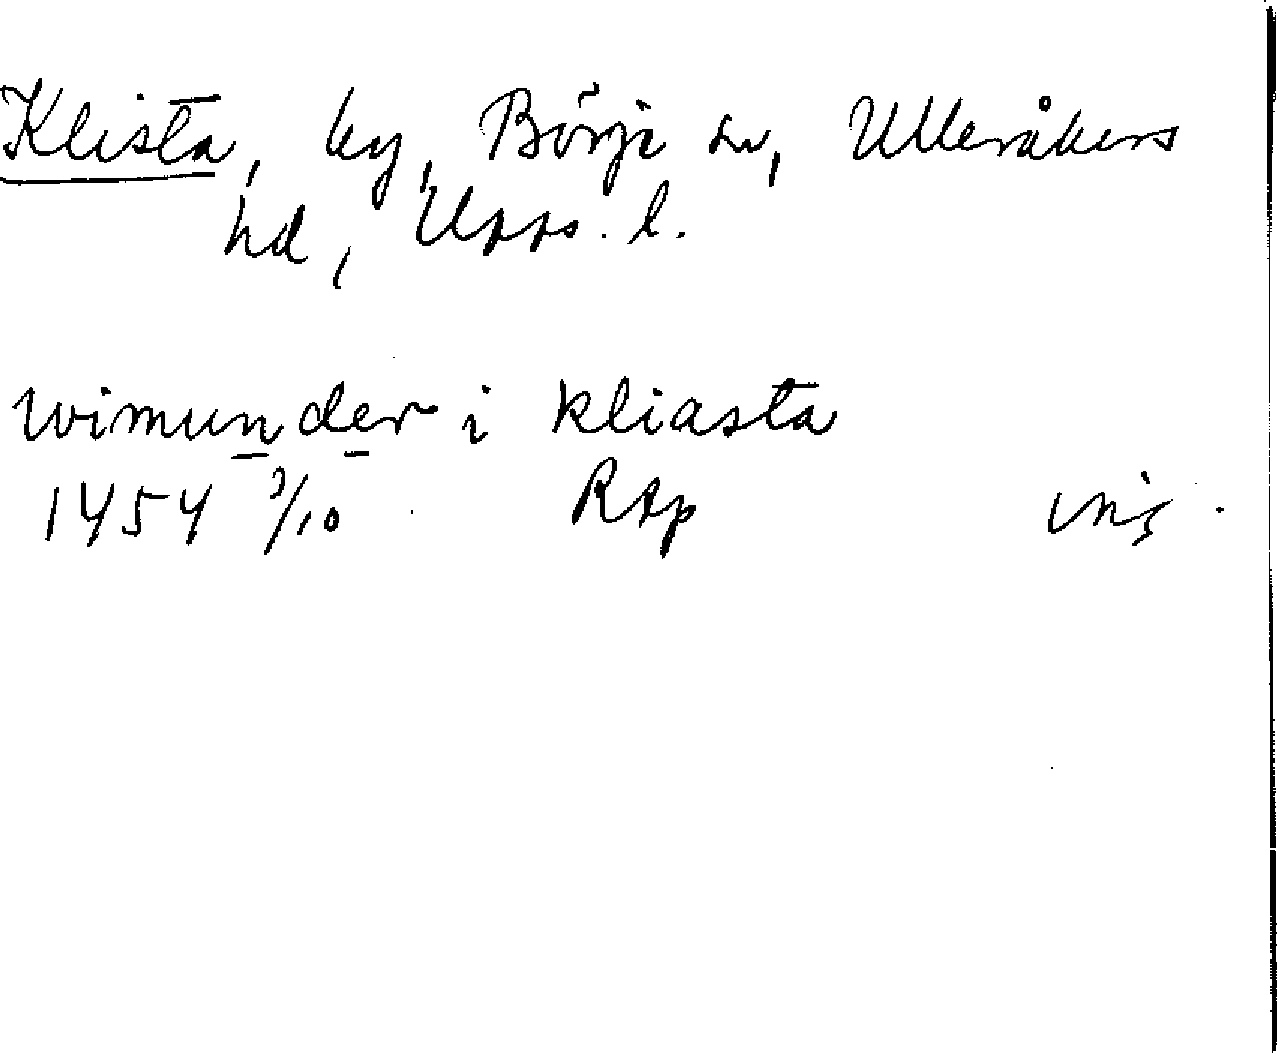 Klista, by, Börje sn, Ulleråkers
hd, Upps. l.
wimunder i kliasta
1454 3/10 Rap